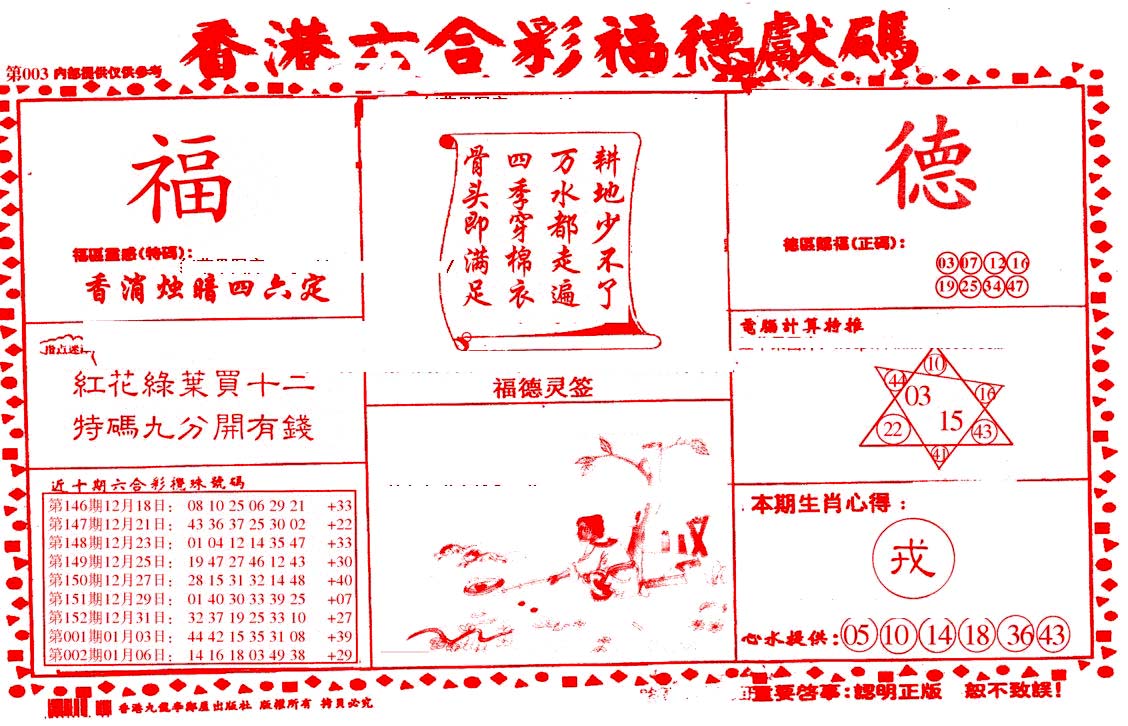 香港六合彩福德獻碼
第003 内部提供仅供参考
福
福區靈感(特碼):
香消烛暗四六定
指点迷
紅花綠葉買十二
特碼九分開有錢
近十期六合彩攪珠號碼
第146期12月18日: 08 10 25 06 29 21 +33
第147期12月21日: 43 36 37 25 30 02 +22
第148期12月23日: 01 04 12 14 35 47 +33
第149期12月25日: 19 47 27 46 12 43 +30
第150期12月27日: 28 15 31 32 14 48 +40
第151期12月29日: 01 40 30 33 39 25 +07
第152期12月31日: 32 37 19 25 33 10 +27
第001期01月03日: 44 42 15 35 31 08 +39
第002期01月06日: 14 16 18 03 49 38 +29
耕地少不了
万水都走遍
四季穿棉衣
骨头即满足
福德灵签
德
德區賜福(正碼):
03 07 12 16
19 25 34 47
電腦計算特推
10
44 03 16
15
22 43
41
本期生肖心得:
戎
心水提供: 05 10 14 18 36 43
香港九龍李鄭屋出版社 版權所有 拷貝必究
重要啓事:認明正版 恕不致誤!